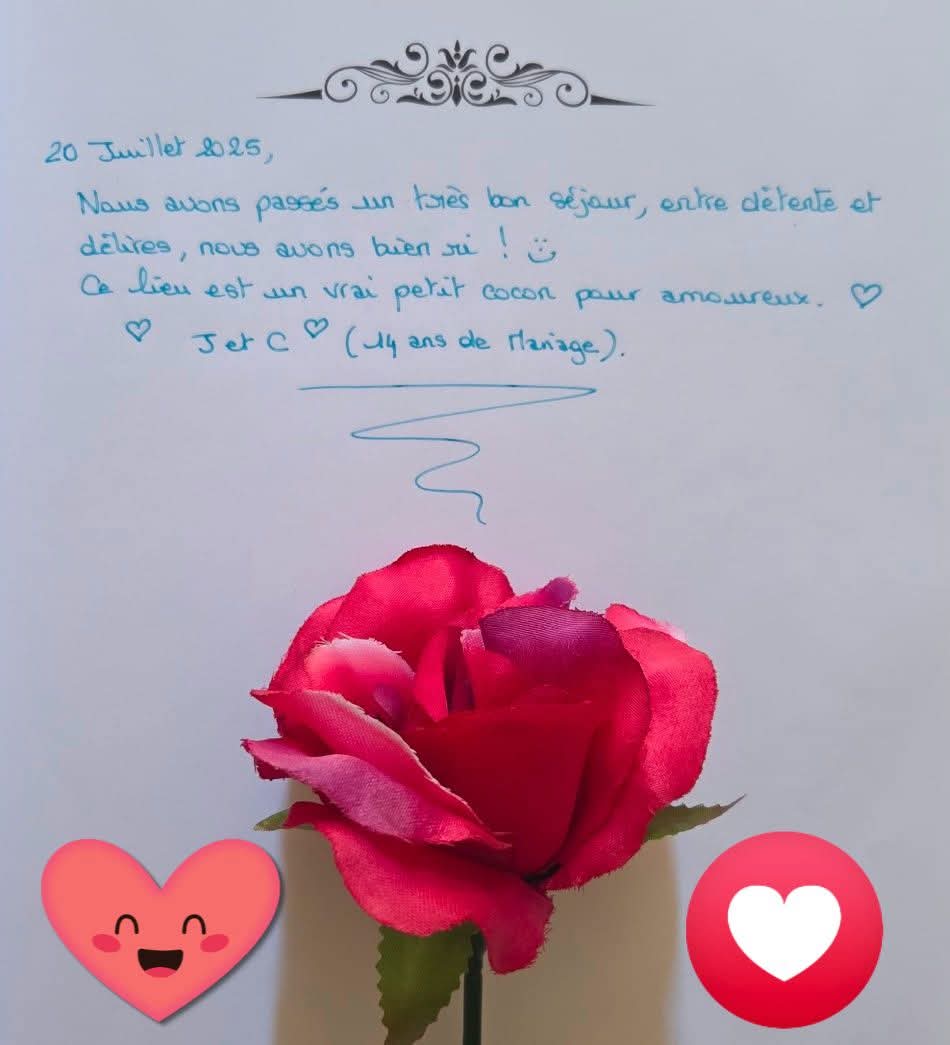 20 Juillet 2025,
Nous avons passés un très bon séjour, entre détente et
délires, nous avons bien ri ! :)
Ce lieu est un vrai petit cocon pour amoureux. ♡
♡ J et C ♡ (14 ans de Mariage).